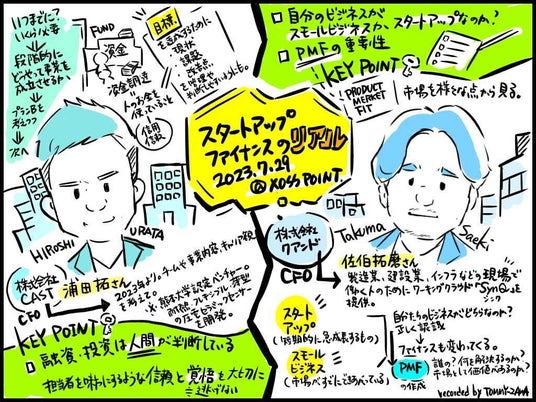 いつまでに?
いくら必要
段階的に
どうやって事業を
成立させるか
プランBを
考えつつ
次へ
FUND
資金
資金調達
人のお金を
使っていること
信用
信頼
目標
を達成するために
現状
課題
改善点
を整理
□ 自分のビジネスが
スモールビジネスか
スタートアップなのか?
□ PMFの重要性
KEY POINT
PRODUCT
MARKET
FIT
市場を様々な点から見る。
スタートアップ
ファイナンスのリアル
2023.7.29
@ XOSS POINT.
HIROSHI
URATA
株式会社
CAST
CFO
浦田拓さん
2023年より。チームや事業内容、キャリア観
を考えて。
※熊本大学認定ベンチャー。
耐熱、フレキシブル、薄型
の圧電センサー
を開発。
KEY POINT
□ 融資・投資は人間が判断している
担当者を味方にするような信頼と覚悟を大切に
逃げない
株式会社
クアンド
CFO
Takuma
Saeki
佐伯拓磨さん
製造業、建設業、インフラなどの現場で
働く人のためにワーキングクラウド「SynQ」を
シンク
提供。
スタート
アップ
(短期的に急成長するもの)
スモール
ビジネス
(市場がすでにできあがっている)
自分たちのビジネスがどちらなのか?
正しく認識
ファイナンスも変わってくる。
PMF
の作成
誰の?何を解決するのか?
市場として価値があるのか?
recorded by